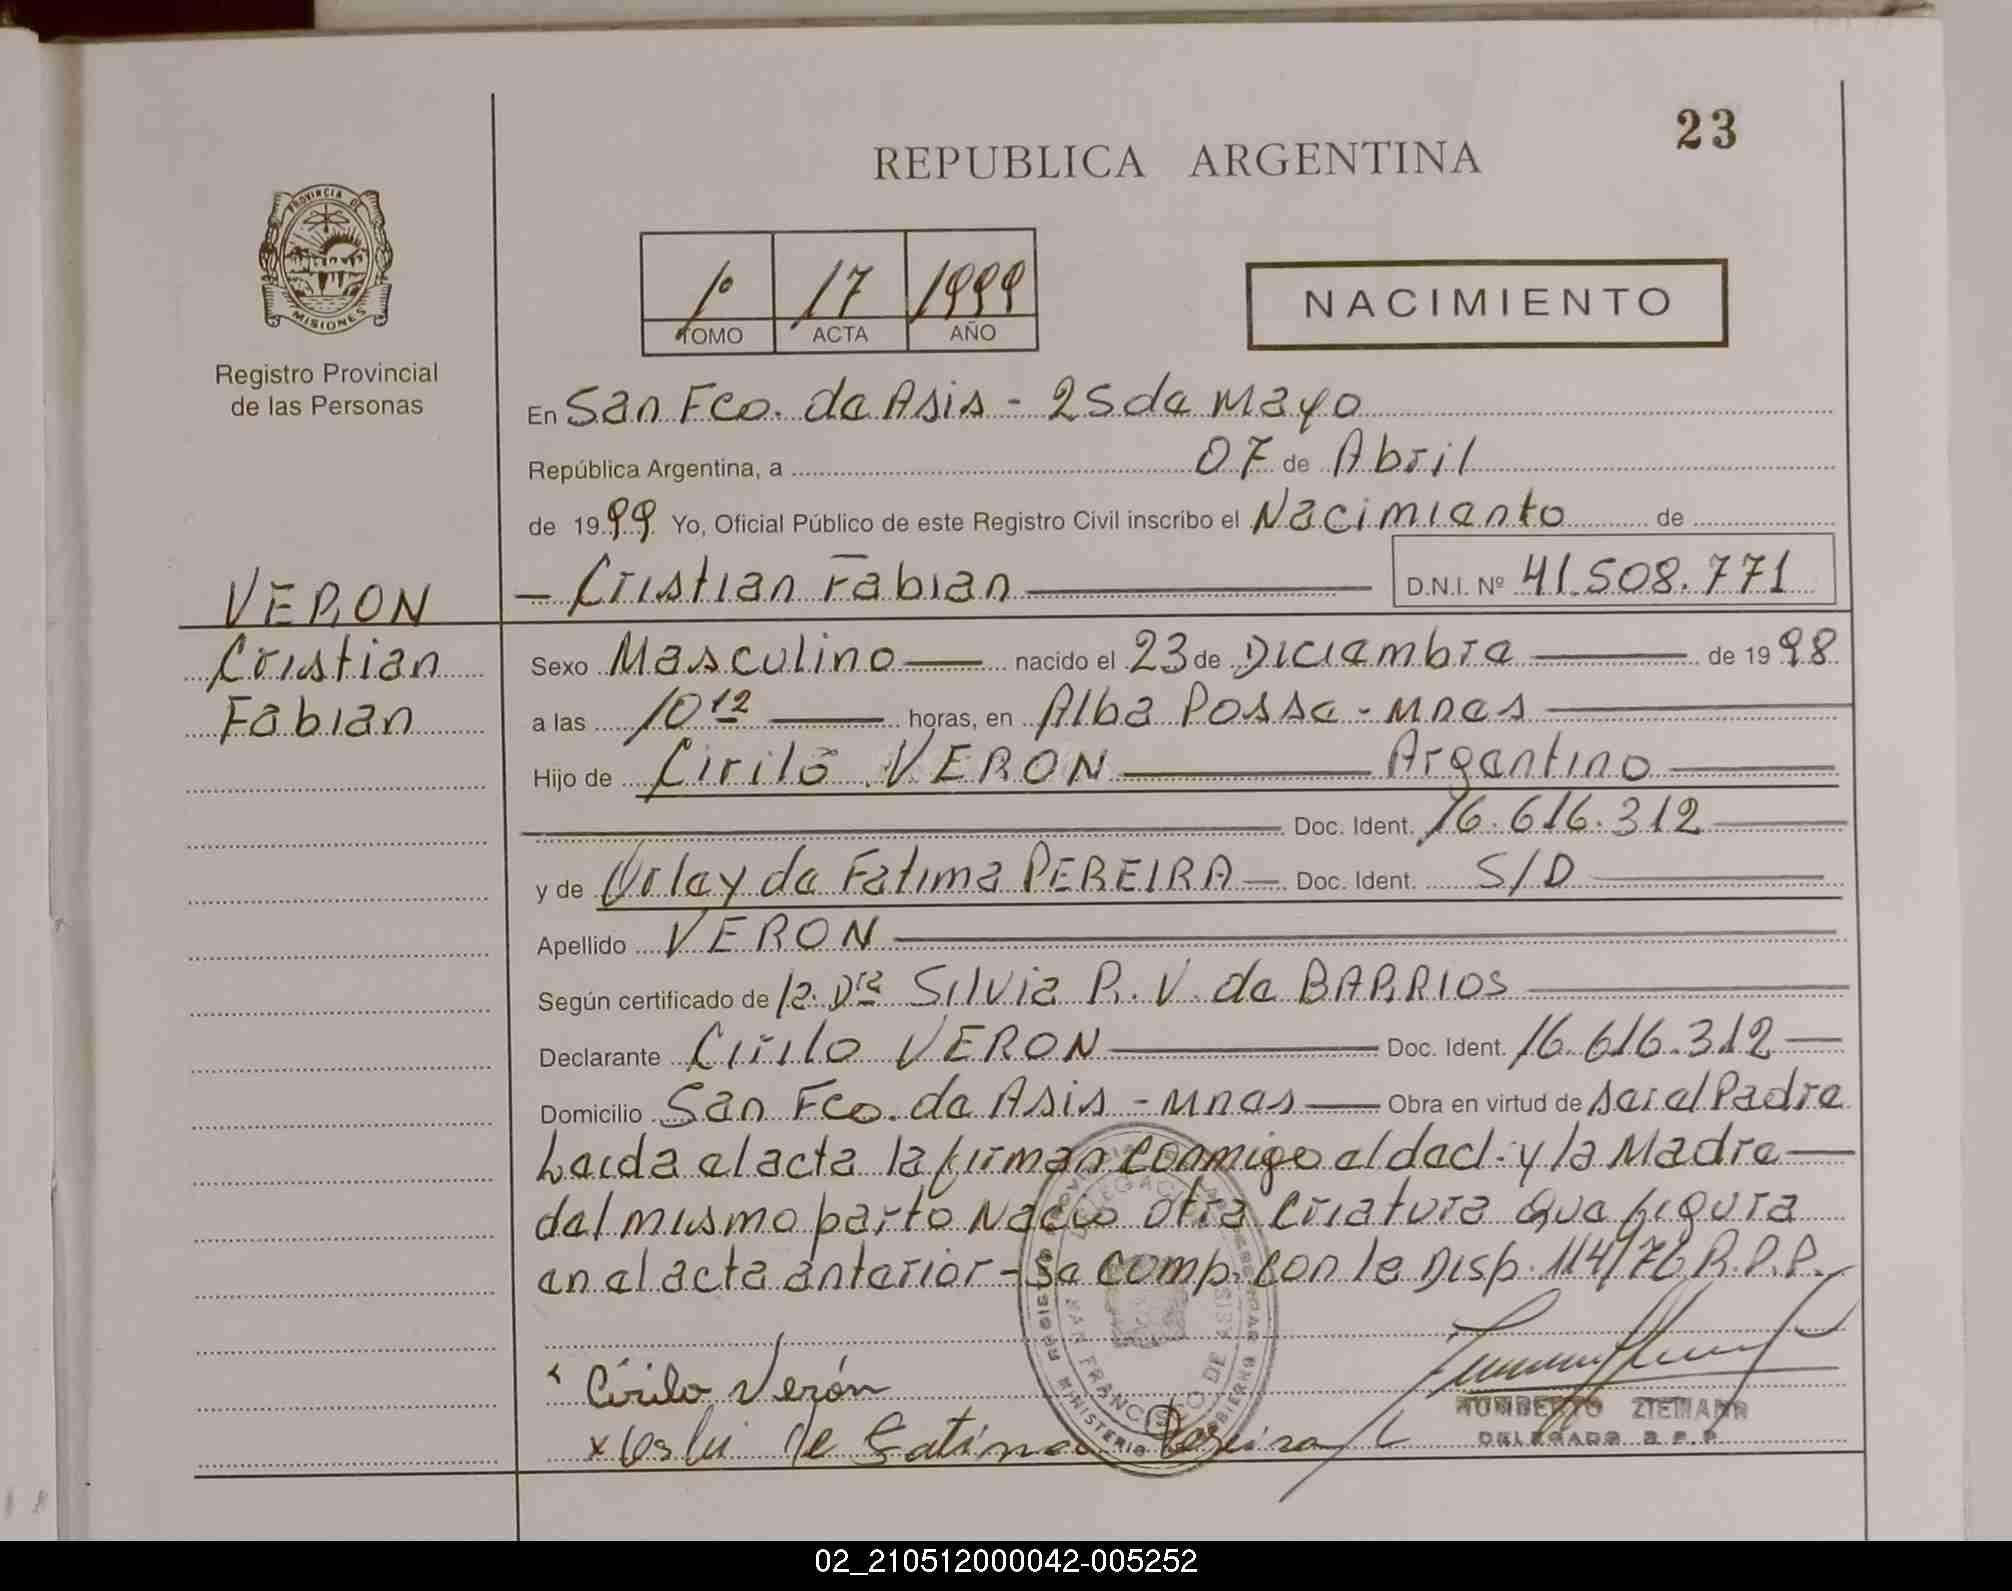 23
REPUBLICA ARGENTINA
PROVINCIA DE
MISIONES
Registro Provincial
de las Personas
1º 17 1999
TOMO ACTA AÑO
NACIMIENTO
En San Fco. de Asis - 25 de Mayo
República Argentina, a 07 de Abril
de 1999 Yo, Oficial Público de este Registro Civil inscribo el Nacimiento de
- Cristian Fabian D.N.I. Nº 41.508.771
VERON
Cristian
Fabian
Sexo Masculino nacido el 23 de Diciembre de 1998
a las 10 12 horas, en Alba Posse - Mnes
Hijo de Cirilo VERON Argentino
Doc. Ident. 16.616.312
y de de Fatima PEREIRA Doc. Ident. S/D
Apellido VERON
Según certificado de la Dra Silvia R. V. de BARRIOS
Declarante Cirilo VERON Doc. Ident. 16.616.312
Domicilio San Fco. de Asis - Mnes Obra en virtud de ser el Padre
Leida el acta la firman conmigo el decl. y la Madre
del mismo parto Nacio otra criatura que figura
en el acta anterior - se comp. con le Disp. 114/76 R.P.P.
Cirilo Verón
x de Fatima Pereira
HUMBERTO ZIEMANN
DELEGADO R.P.P.
SAN FRANCISCO DE ASIS
02_210512000042-005252